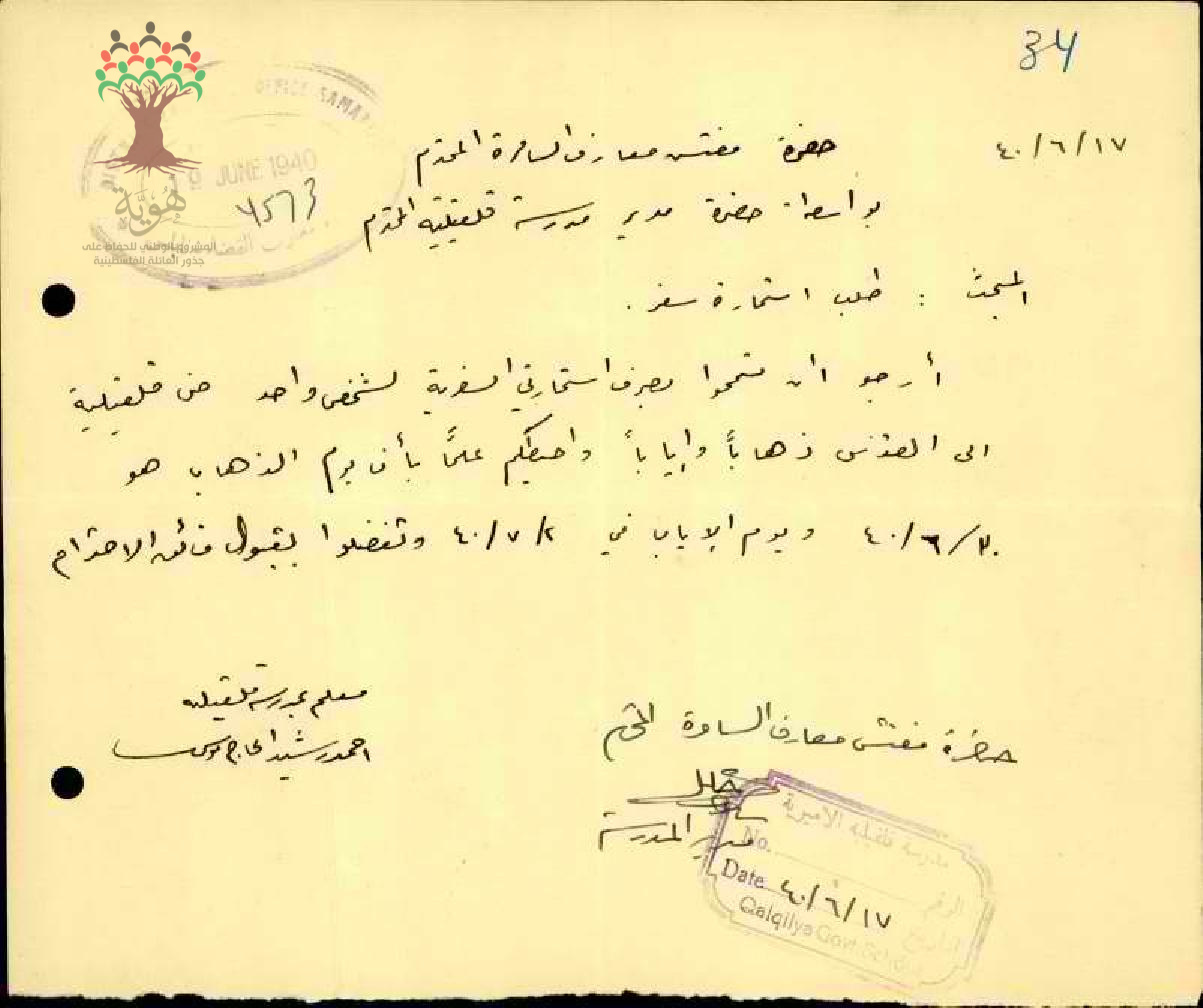 34
OFFICE SAMA
9 JUNE 1940
4573
هُوِيَّة
المشروع الوطني للحفاظ على
جذور العائلة الفلسطينية
٤٠/٦/١٧
حضرة مفتش معارف السامرة المحترم
بواسطة حضرة مدير مدرسة قلقيلية المحترم
المبحث : طلب استمارة سفر .
أرجو ان تسمحوا بصرف استمارتي السفرية لشخص واحد من قلقيلية
الى القدس ذهاباً وإياباً واحيطكم علماً بأن يوم الذهاب هو
٤٠/٦/٣٠ ويوم الإياب في ٤٠/٧/٢ وتفضلوا بقبول فائق الاحترام
معلم بمدرسة قلقيليه
احمد رشيد الحاج موسى
حضرة مفتش معارف السامرة المحترم
مدير المدرسة
مدرسة قلقيلية الاميرية
No. الرقم
Date ٤٠/٦/١٧ التاريخ
Qalqilya Govt. School